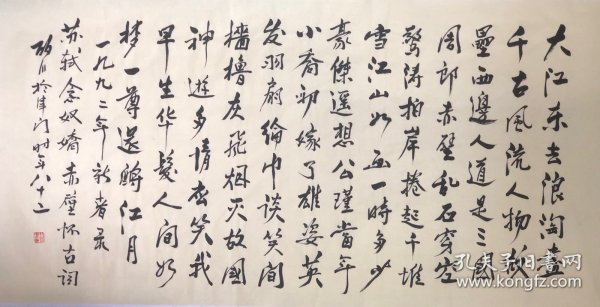 大江东去浪淘盡
千古風流人物故
壘西邊人道是三國
周郎赤壁乱石穿空
驚涛拍岸捲起千堆
雪江山如画一時多少
豪傑遥想公瑾當年
小喬初嫁了雄姿英
发羽扇綸巾谈笑间
檣櫓灰飛烟灭故國
神遊多情应笑我
早生华髮人间如
梦一尊還酹江月
一九九二年 者录
苏轼念奴嬌赤壁怀古词
於津门时年八十二
孔夫子旧書網
www.kongfz.com